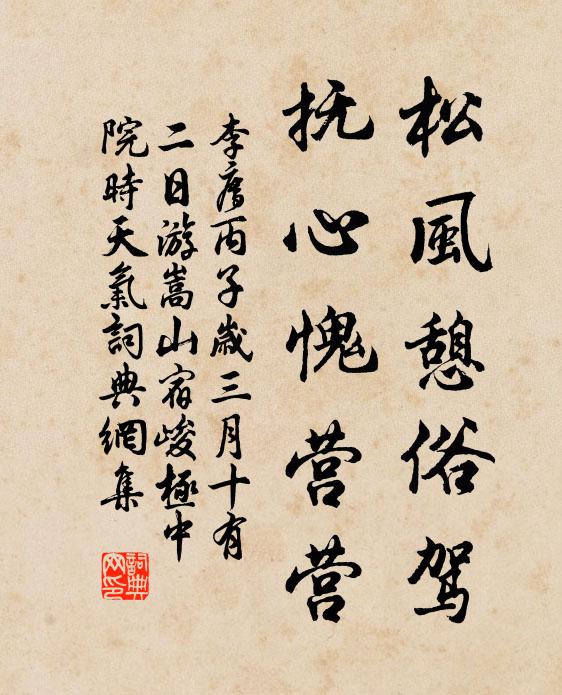 松風憩俗駕
抚心愧营营
李廌丙子歲三月十有
二日游嵩山宿峻極中
院時天氣詞典網集
詞典网印